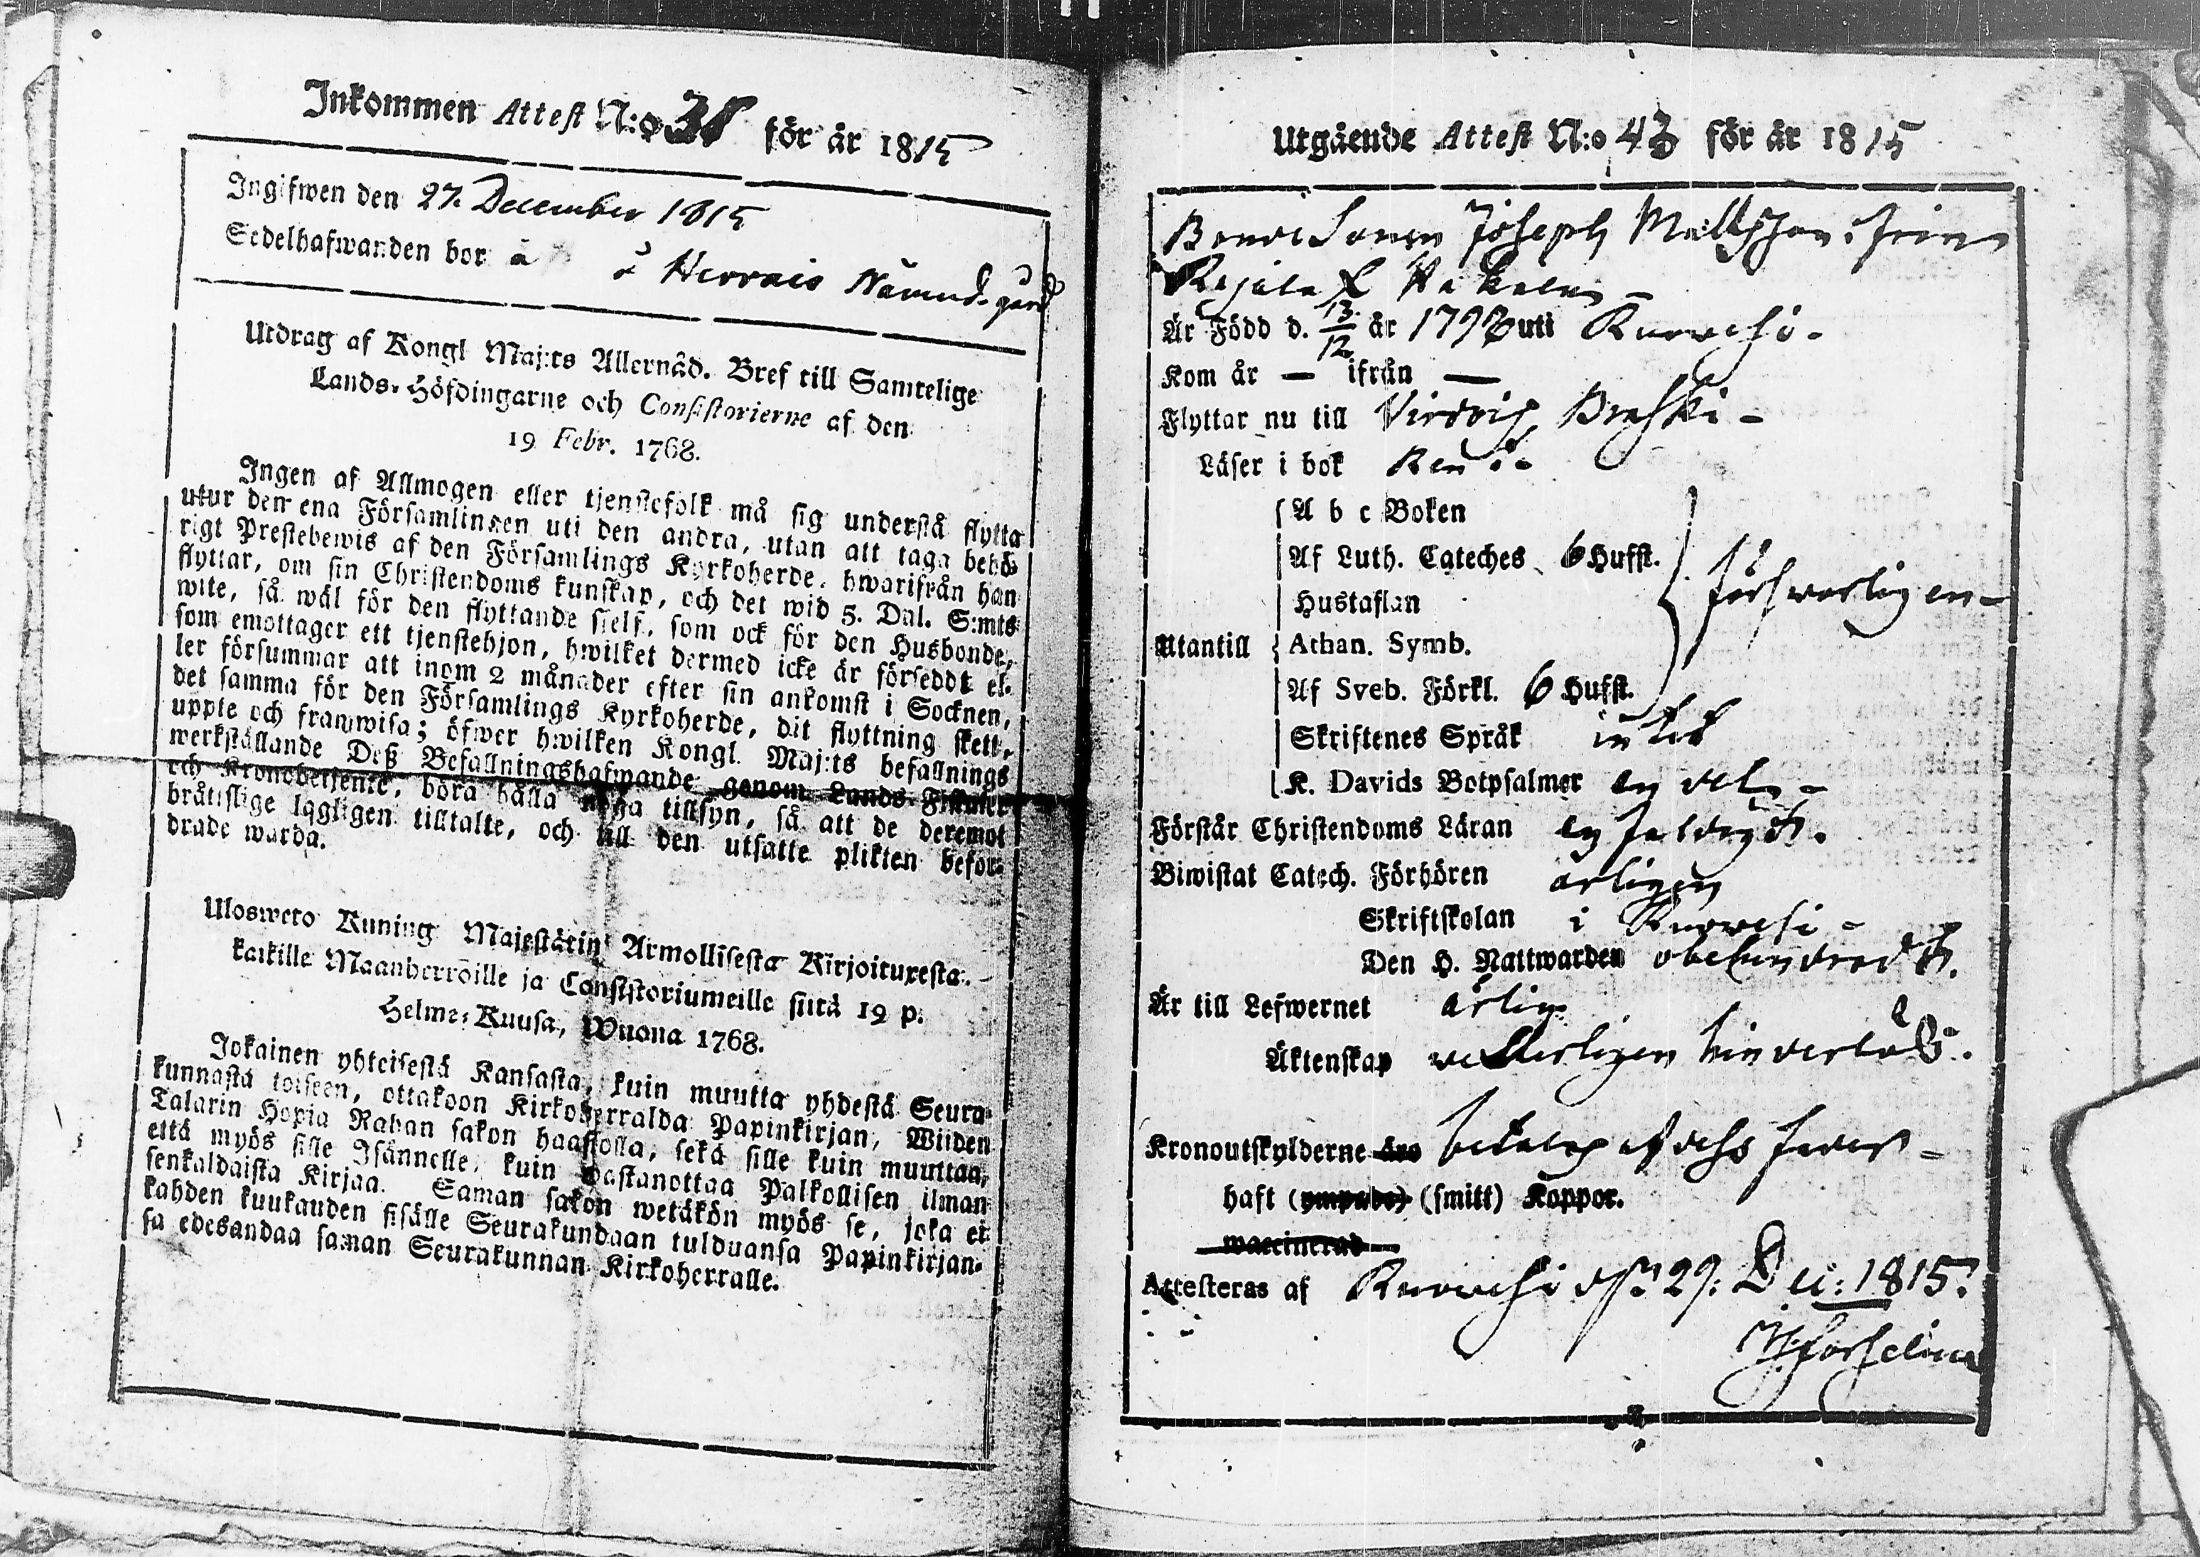 Inkommen Attest N:o 38 för år 1815
Ingifwen den 27. December 1815
Sedelhafwanden bor å å Herrais Nämnd. gård
Utdrag af Kongl Maj:ts Allernåd. Bref till Samtelige
Lands-Höfdingarne och Consistorierne af den
19 Febr. 1768.
Ingen af Allmogen eller tjenstefolk må sig understå flytta
utur den ena Församlingen uti den andra, utan att taga behö-
rigt Prestebewis af den Församlings Kyrkoherde, hwarifrån han
flyttar, om sin Christendoms kunskap, och det wid 5. Dal. S:mts
wite, så wäl för den flyttande sielf, som ock för den Husbonde,
som emottager ett tjenstehjon, hwilket dermed icke är förseddt el-
ler försummar att inom 2 månader efter sin ankomst i Socknen,
det samma för den Församlings Kyrkoherde, dit flyttning skett,
uppte och framwisa; öfwer hwilken Kongl. Maj:ts befallnings
werkställande Deß Befallningshafwande genom Lands-Fiskaler
och Kronobetjente, böra hålla noga tillsyn, så att de deremot
bråttslige lagligen tilltalte, och till den utsatte plikten befor-
drade warda.
Ulosweto Kuning Majestätin Armollisesta Kirjoituxesta
kaikille Maanherroille ja Consistoriumeille siitä 19 p.
Helme-Kuusa, Wuona 1768.
Jokainen yhteisestä Kansasta, kuin muutta yhdestä Seura-
kunnasta toiseen, ottakoon Kirkoherralda Papinkirjan, Wiiden
Talarin Hopia Rahan sakon haastolla, sekä sille kuin muuttaa,
että myös sille Isännelle, kuin wastanottaa Palkollisen ilman
senkaldaista Kirjaa. Saman sakon wetäkön myös se, joka ei
kahden kuukauden sisälle Seurakundaan tulduansa Papinkirjan-
sa edesandaa saman Seurakunnan Kirkoherralle.
Utgående Attest N:o 43 för år 1815
Bonde Sonen Joseph Mattsson ifrån
Är Född d. 13/12 år 1796 uti Kuorvesi -
Kom år — ifrån —
Flyttar nu till Virdois
Läser i bok Rent -
A b c Boken
Af Luth. Cateches 6 Hufst.
Hustaflan
försvarligen -
Utantill Athan. Symb.
Af Sveb. Förkl. 6 Hufst.
Skriftenes Språk intet
K. Davids Botpsalmer en del -
Förstår Christendoms Läran enfaldigt.
Biwistat Catech. Förhören årligen
Skriftskolan i Kuorvesi -
Den H. Nattwarden obehindradt.
Är till Lefwernet ärlig
Äktenskap veterligen hinderlös.
Kronoutskylderne äro betalas af dess fader -
haft (ympade) (smitt) Koppor.
waccinerad
Attesteras af Kuorvesi d. 29: Dec: 1815.